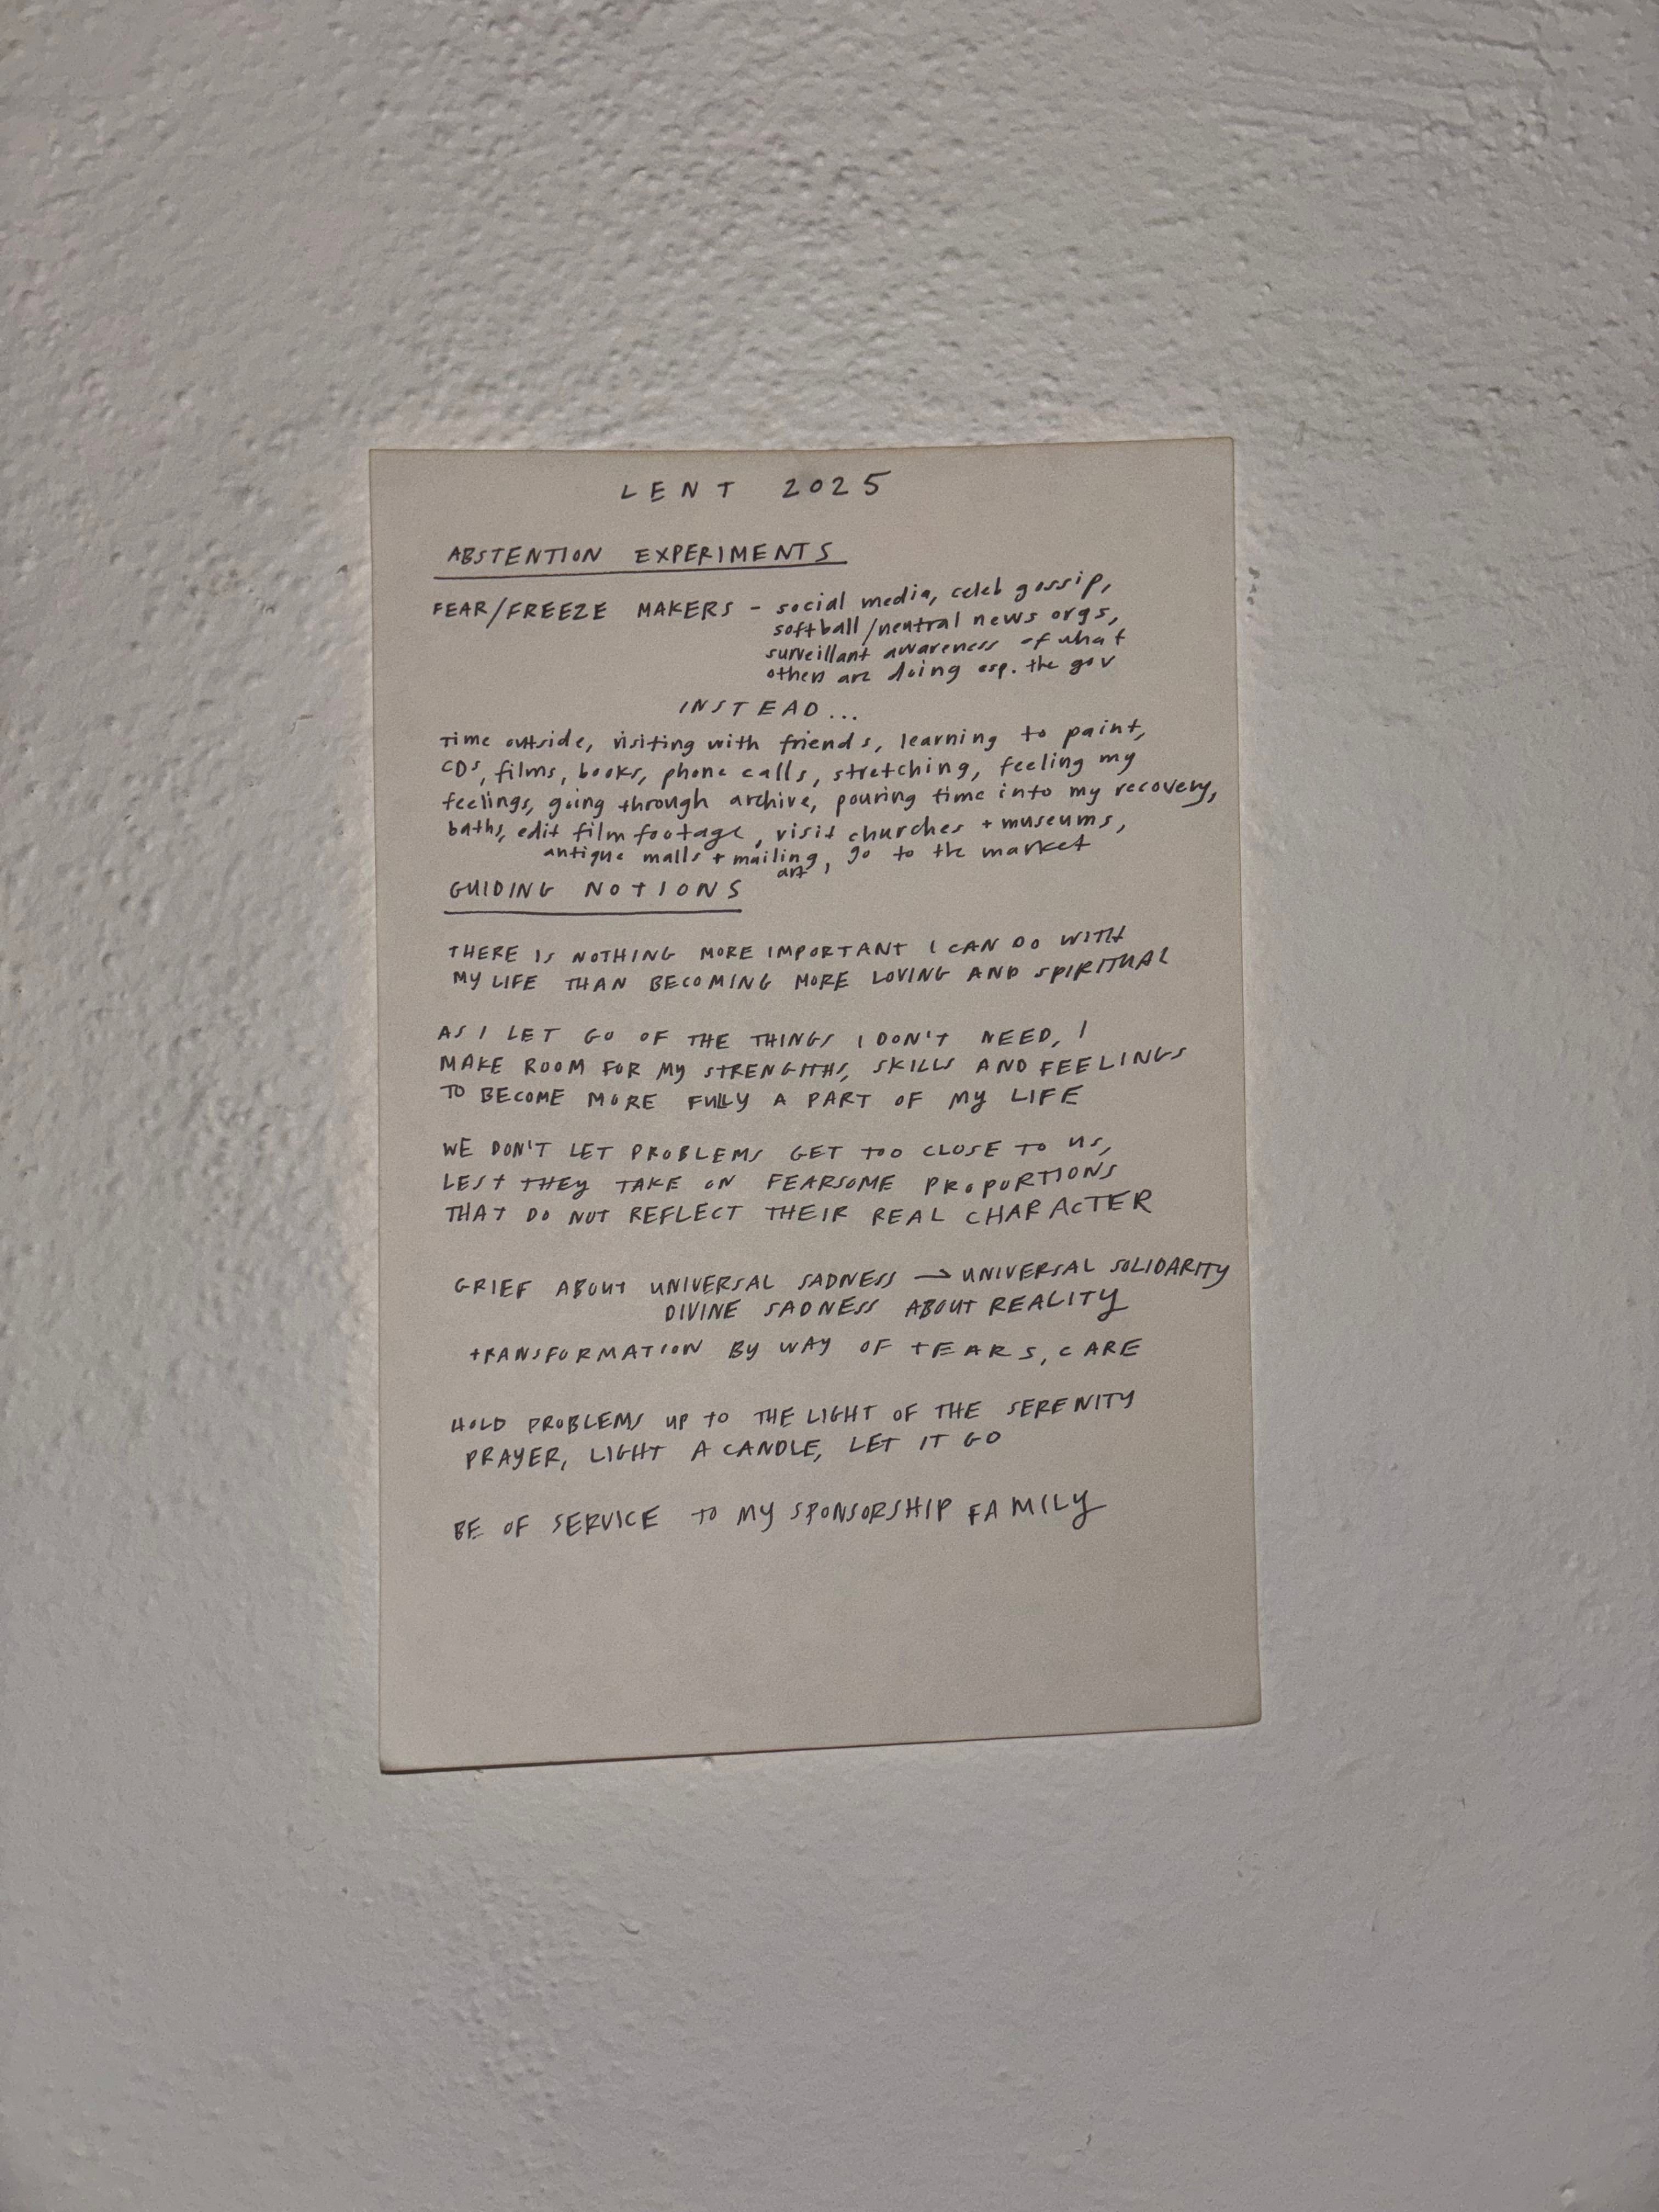 LENT 2025
ABSTENTION EXPERIMENTS
FEAR/FREEZE MAKERS - social media, celeb gossip,
softball/neutral news orgs,
surveillant awareness of what
others are doing esp. the gov
INSTEAD...
time outside, visiting with friends, learning to paint,
CDs, films, books, phone calls, stretching, feeling my
feelings, going through archive, pouring time into my recovery,
baths, edit film footage, visit churches + museums,
antique malls + mailing, go to the market
art
GUIDING NOTIONS
THERE IS NOTHING MORE IMPORTANT I CAN DO WITH
MY LIFE THAN BECOMING MORE LOVING AND SPIRITUAL
AS I LET GO OF THE THINGS I DON'T NEED, I
MAKE ROOM FOR MY STRENGTHS, SKILLS AND FEELINGS
TO BECOME MORE FULLY A PART OF MY LIFE
WE DON'T LET PROBLEMS GET TOO CLOSE TO US,
LEST THEY TAKE ON FEARSOME PROPORTIONS
THAT DO NOT REFLECT THEIR REAL CHARACTER
GRIEF ABOUT UNIVERSAL SADNESS → UNIVERSAL SOLIDARITY
DIVINE SADNESS ABOUT REALITY
TRANSFORMATION BY WAY OF TEARS, CARE
HOLD PROBLEMS UP TO THE LIGHT OF THE SERENITY
PRAYER, LIGHT A CANDLE, LET IT GO
BE OF SERVICE TO MY SPONSORSHIP FAMILY